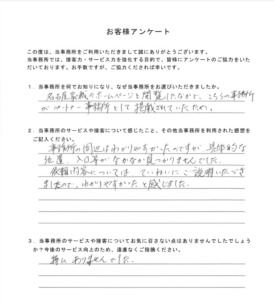 お客様アンケート
この度は、当事務所をご利用いただきまして誠にありがとうございます。
当事務所では、接客力・サービス力を強化する目的で、皆様にアンケートのご協力をいた
だいております。お手数ですが、ご協力くだされば幸いです。
1．当事務所を何でお知りになり、なぜ当事務所をお選びいただきましたか。
名古屋家裁のホームページを閲覧したなかで、こちらの事務所
がパートナー事務所として掲載されていたため。
2．当事務所のサービスや接客について感じたこと、その他当事務所を利用された感想を
ご記入ください。
事務所の周辺はわかりやすかったのですが、具体的な
位置、入口等がなかなか見つかりませんでした。
依頼内容については、ていねいにご説明いただき
ましたので、わかりやすかったと感じました。
3．当事務所のサービスや接客についてお気に召さない点はありませんでしたでしょう
か？今後のサービス向上のため、遠慮なくご指摘ください。
特にありませんでした。